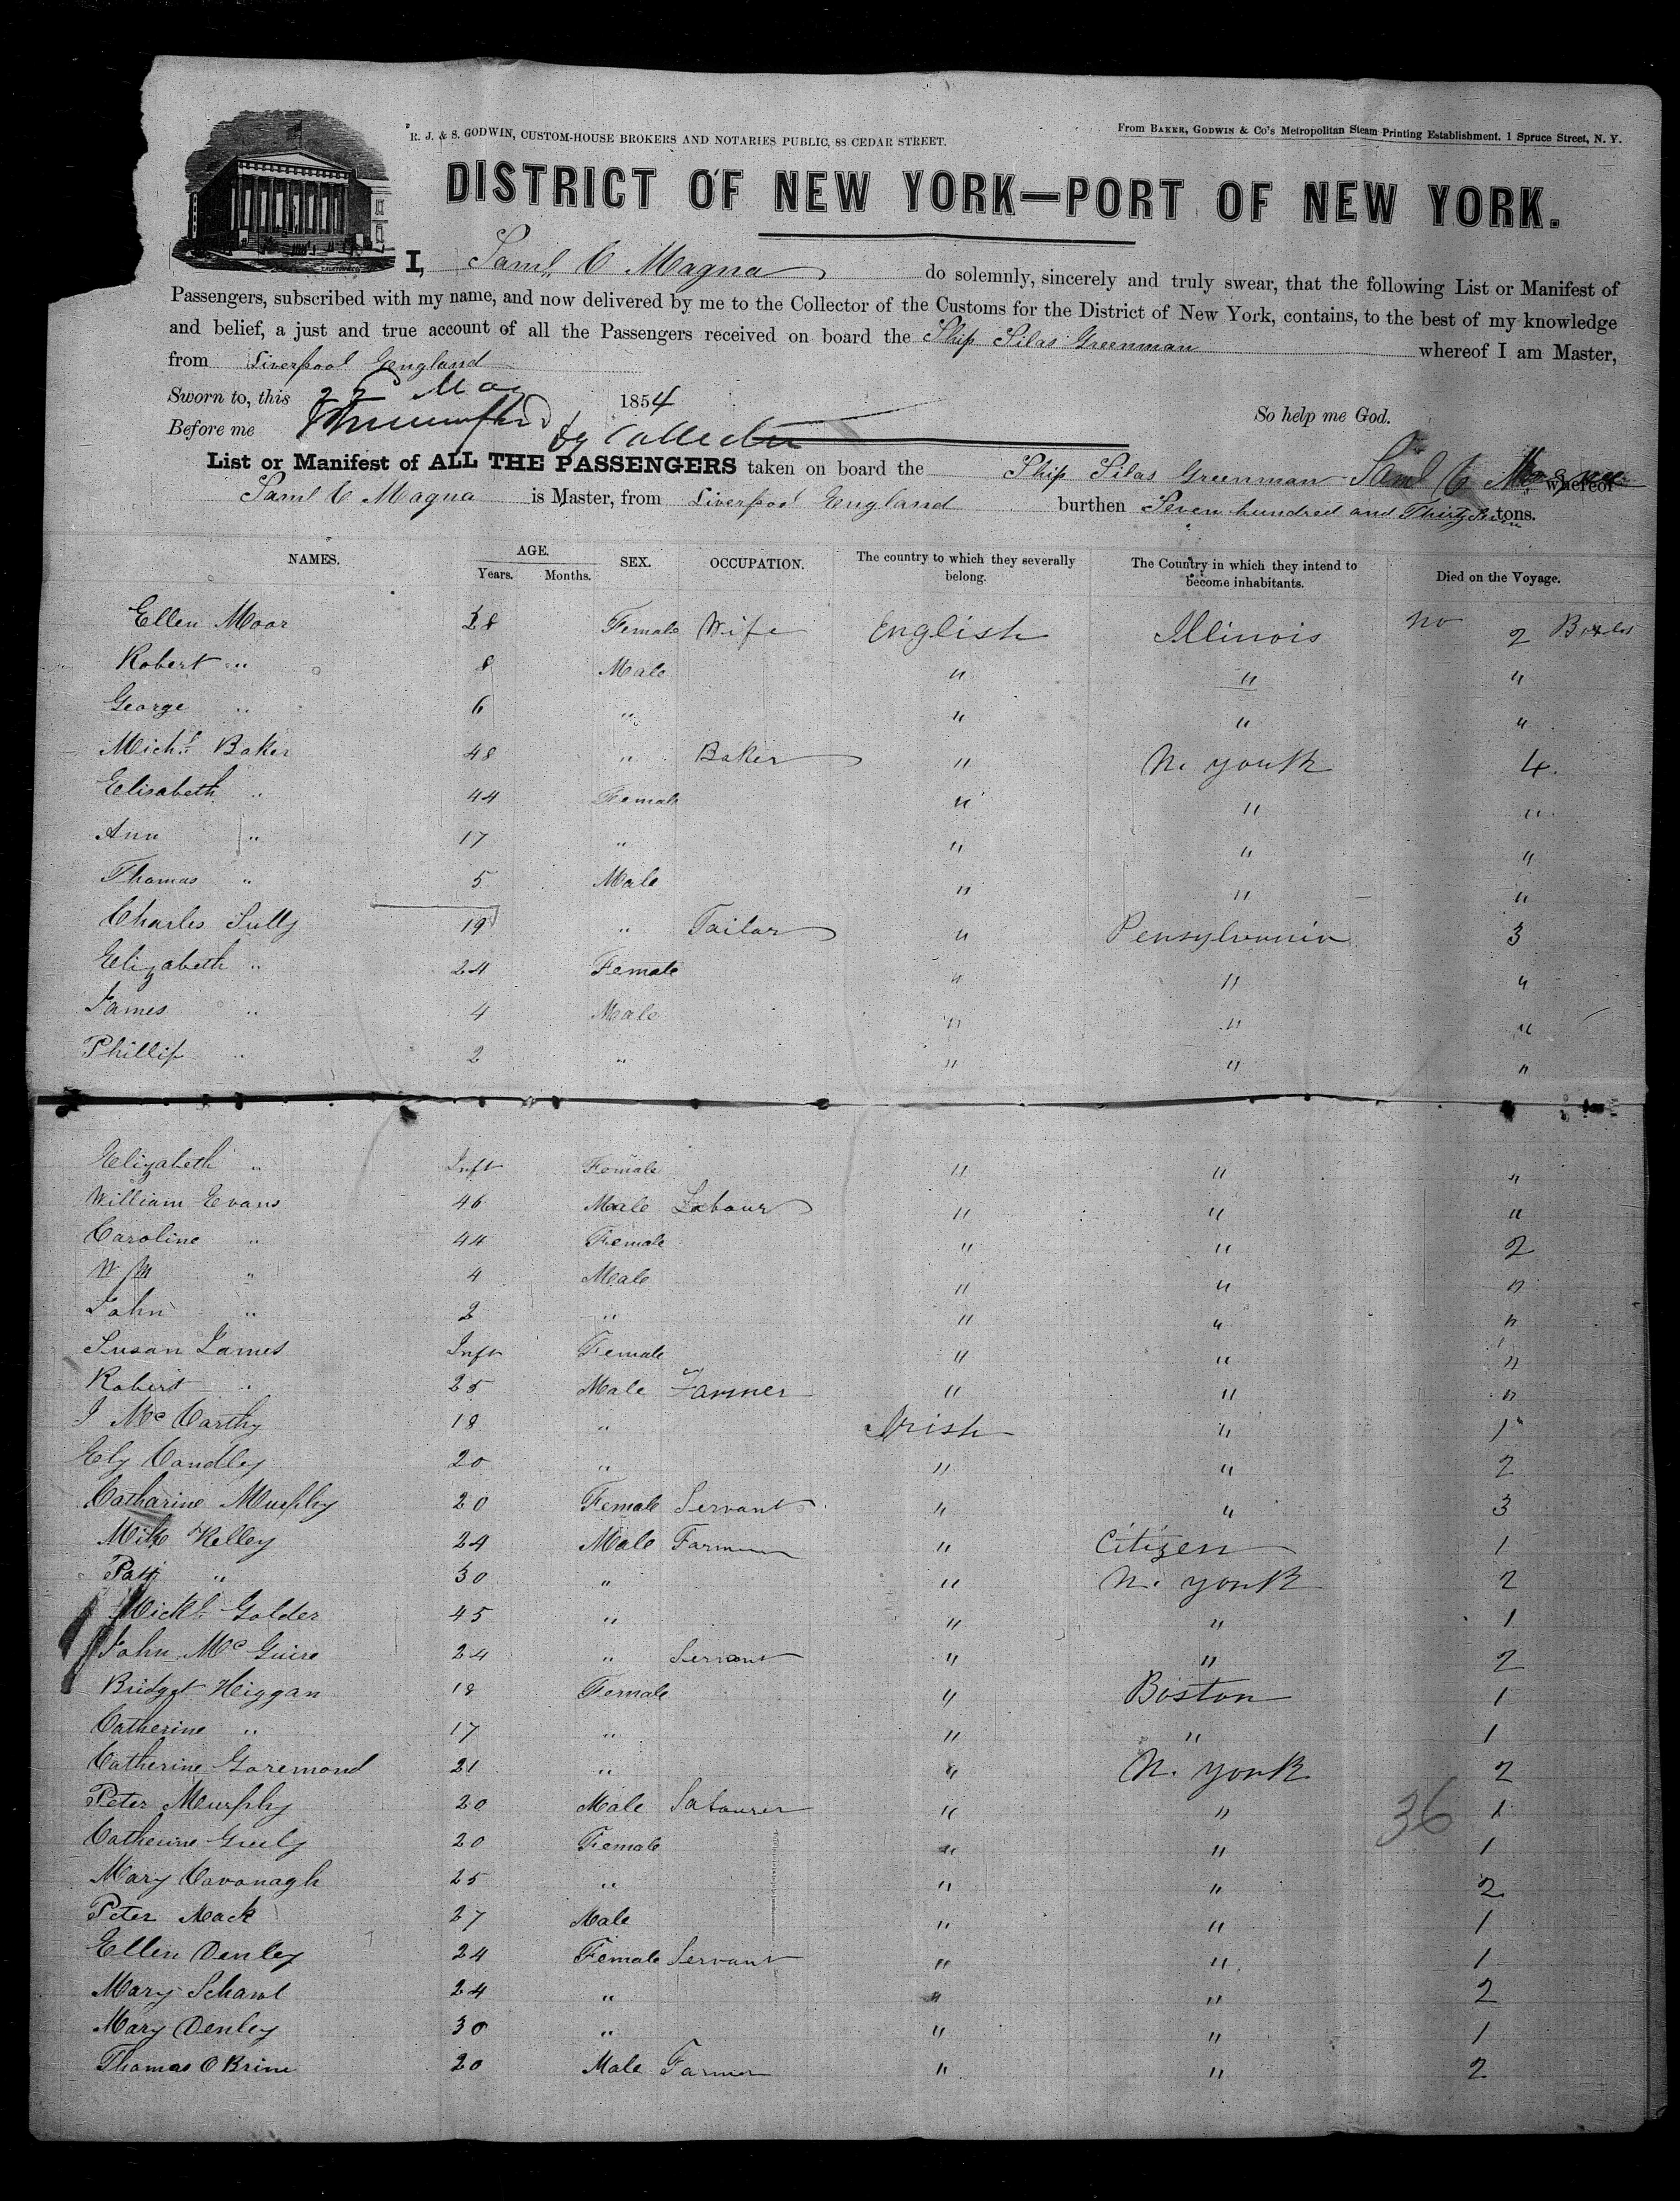 R. J. & S. GODWIN, CUSTOM-HOUSE BROKERS AND NOTARIES PUBLIC, 88 CEDAR STREET.
From BAKER, GODWIN & Co's Metropolitan Steam Printing Establishment, 1 Spruce Street, N. Y.
DISTRICT OF NEW YORK—PORT OF NEW YORK.
I, Saml C Magna do solemnly, sincerely and truly swear, that the following List or Manifest of
Passengers, subscribed with my name, and now delivered by me to the Collector of the Customs for the District of New York, contains, to the best of my knowledge
and belief, a just and true account of all the Passengers received on board the Ship Silas Greenman whereof I am Master,
from Liverpool England
Sworn to, this 22 May 1854 So help me God.
Before me Dy Collector
List or Manifest of ALL THE PASSENGERS taken on board the Ship Silas Greenman Saml C whereof
Saml C Magna is Master, from Liverpool England burthen Seven hundred and Thirty Seven tons.
NAMES. AGE. Years. Months. SEX. OCCUPATION. The country to which they severally belong. The Country in which they intend to become inhabitants. Died on the Voyage.
Ellen Moor 28 Female Wife English Illinois no 2
Robert " 8 Male " " "
George " 6 " " " "
Michl Baker 48 " Baker " N. York 4
Elisabeth " 44 Female " " "
Ann " 17 " " " "
Thomas " 5 Male " " "
Charles Sully 19 " Tailor " Pensylvania 3
Elizabeth " 24 Female " " "
James " 4 Male " " "
Phillip " 2 " " " "
Elizabeth " Inft Female " " "
William Evans 46 Male Labour " " "
Caroline " 44 Female " " 2
Wm " 4 Male " " "
John " 2 " " " "
Susan James Inft Female " " "
Robert " 25 Male Farmer " " "
J McCarthy 18 " Irish " 1
Ely Candley 20 " " " 2
Catharine Murphy 20 Female Servant " " 3
Mike Kelley 24 Male Farmer " Citizen 1
Pat " 30 " " N. York 2
Michl Golder 45 " " " 1
John McGuire 24 " Servant " " 2
Bridget Higgan 18 Female " Boston 1
Catherine " 17 " " " 1
Catherine Goremond 21 " " N. York 2
Peter Murphy 20 Male Labourer " " 1
36
Catherine 20 Female " " 1
Mary Cavanagh 25 " " " 2
Peter Mack 27 Male " " 1
Ellen Denley 24 Female Servant " " 1
Mary 24 " " " 2
Mary Denley 30 " " " 1
Thomas O Brine 20 Male Farmer " " 2